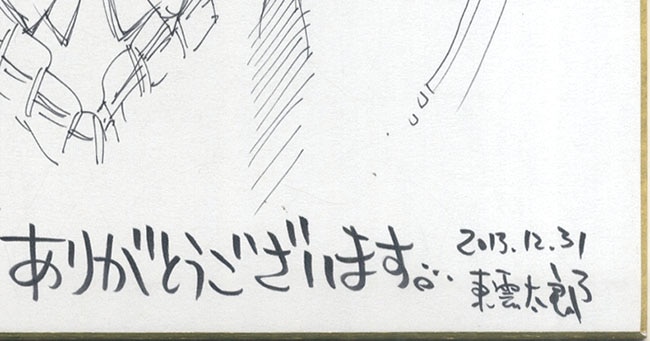 ありがとうございます。
2013.12.31
東雲太郎